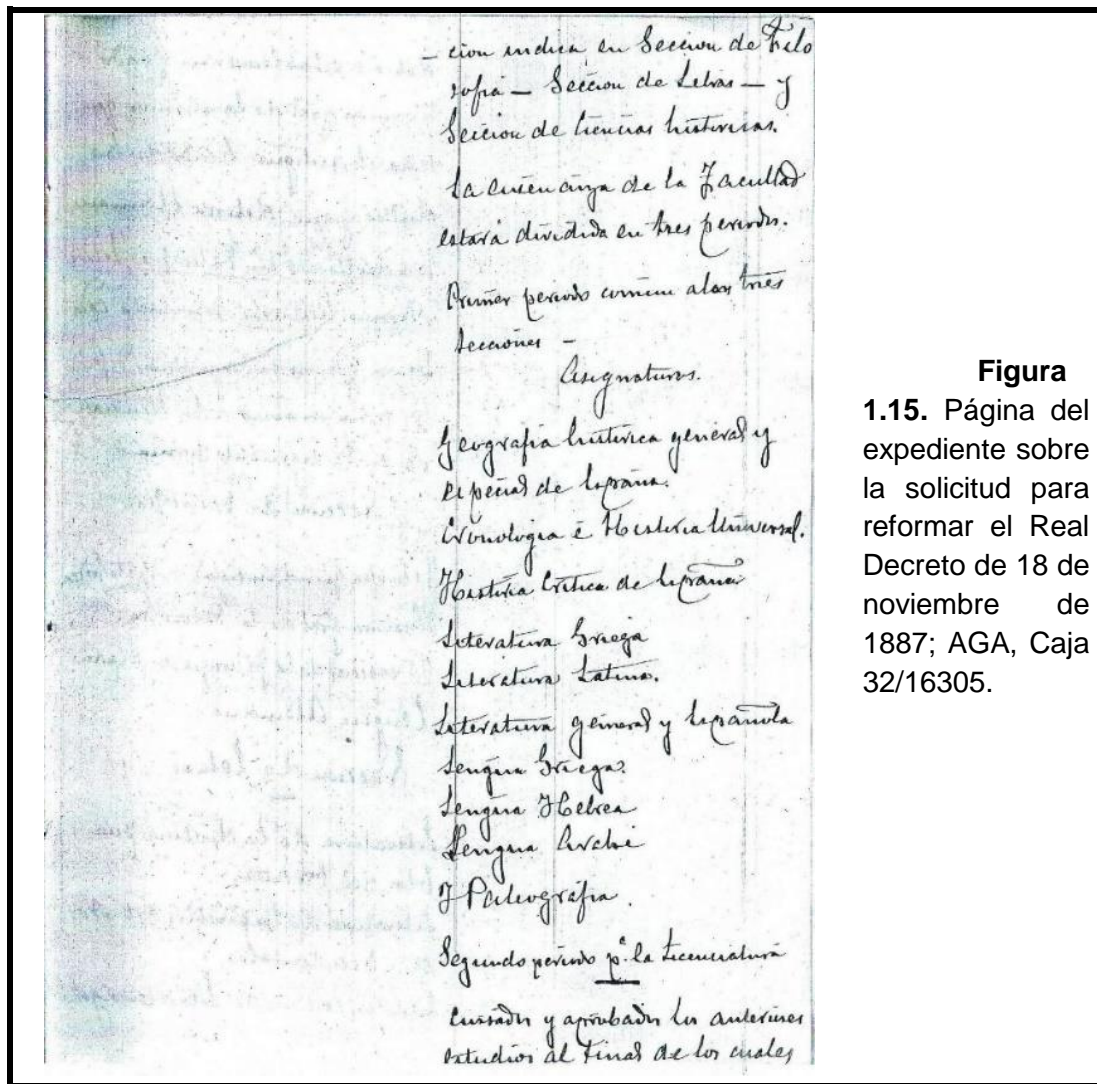 – cion indica en Seccion de Filo
sofia — Seccion de Letras — y
Seccion de Ciencias historicas.
La enseñanza de la Facultad
estará dividida en tres periodos.
Primer periodo comun a las tres
secciones –
Asignaturas.
Geografia historica general y
especial de España.
Cronologia é Historia Universal.
Historia Critica de España
Literatura Griega
Literatura Latina.
Literatura general y Española
Lengua Griega.
Lengua Hebrea
Lengua Arabe
Y Paleografia.
Segundo periodo pª la Licenciatura
Cursados y aprobados los anteriores
estudios al final de los cuales
Figura
1.15. Página del
expediente sobre
la solicitud para
reformar el Real
Decreto de 18 de
noviembre de
1887; AGA, Caja
32/16305.